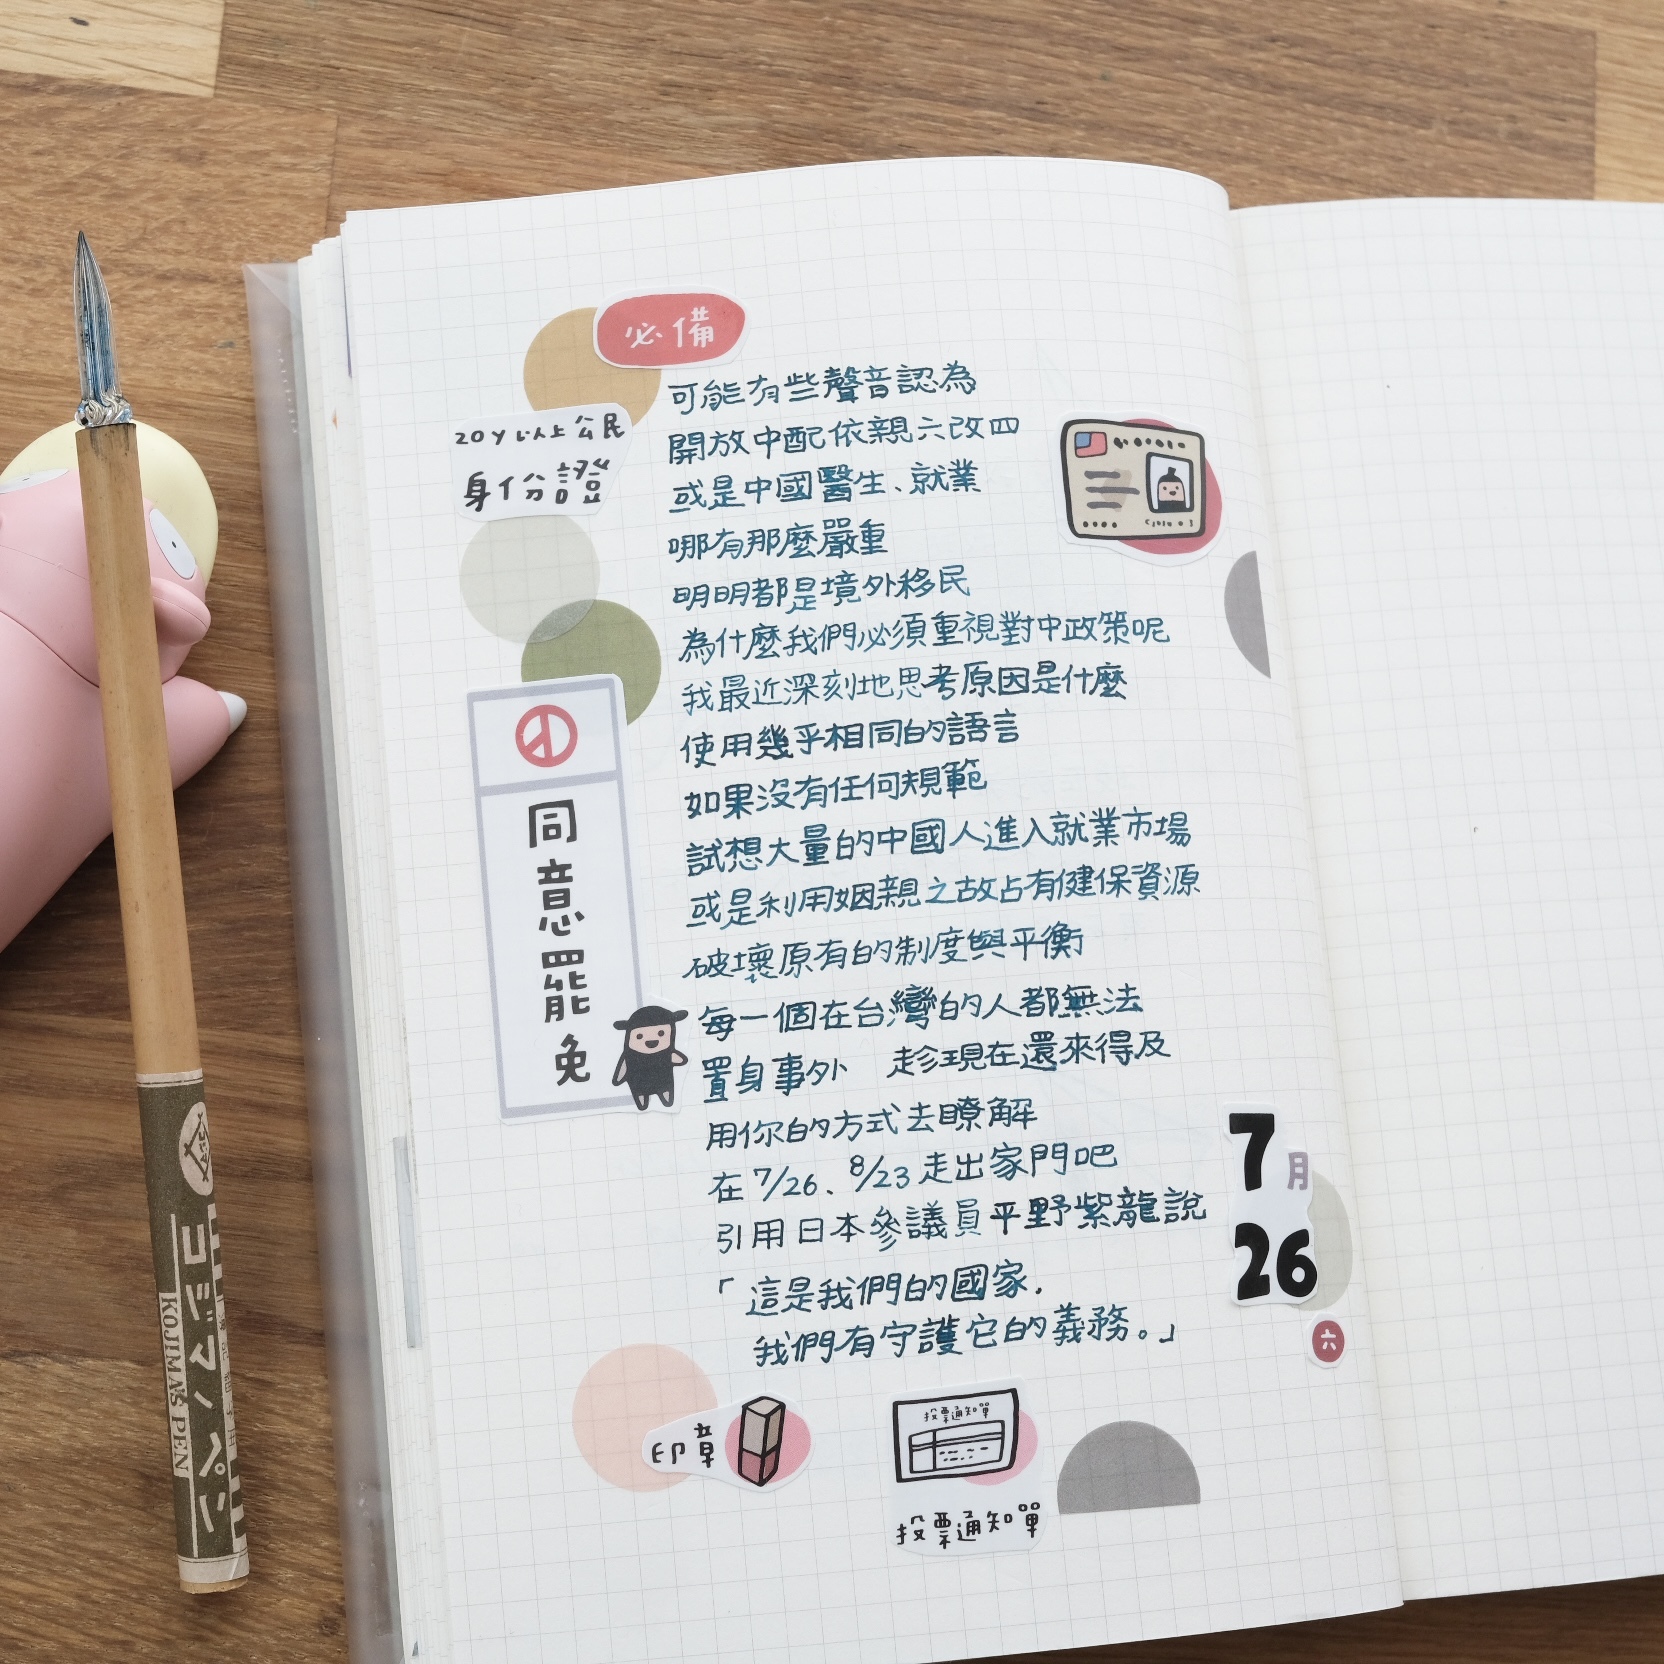 必備
20y以上公民
身份證
可能有些聲音認為
開放中配依親六改四
或是中國醫生、就業
哪有那麼嚴重
明明都是境外移民
為什麼我們必須重視對中政策呢
我最近深刻地思考原因是什麼
使用幾乎相同的語言
如果沒有任何規範
試想大量的中國人進入就業市場
或是利用姻親之故占有健保資源
破壞原有的制度與平衡
每一個在台灣的人都無法
置身事外 趁現在還來得及
用你的方式去瞭解
在7/26、8/23走出家門吧
引用日本參議員平野紫龍說
「這是我們的國家.
我們有守護它的義務。」
同意罷免
7月
26
六
印章
投票通知單
投票通知單
コジマノペン
KOJIMA'S PEN